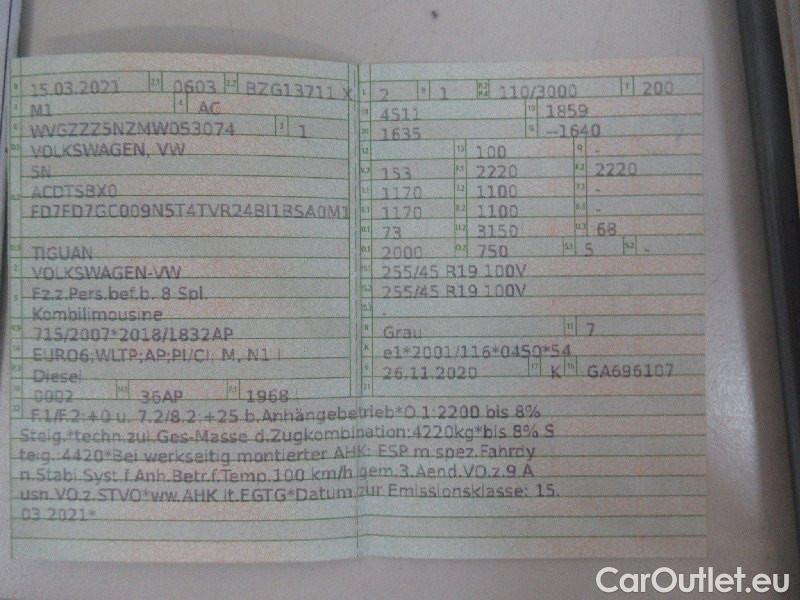 B 15.03.2021 2.1 0603 2.2 BZG13711 X
J M1 4 AC
E WVGZZZ5NZMW053074 3 1
D.1 VOLKSWAGEN, VW
5N
D.2 ACDTSBX0
FD7FD7GC009N5T4TVR24BI1B5A0M1
D.3 TIGUAN
2 VOLKSWAGEN-VW
5 Fz.z.Pers.bef.b. 8 Spl.
Kombilimousine
V.9 715/2007*2018/1832AP
14 EURO6;WLTP;AP;PI/CI; M, N1 I
P.3 Diesel
10 0002 14.1 36AP P.1 1968
L 2 9 1 P.2 P.4 110/3000 T 200
18 4511 19 1859
20 1635 G --1640
12 13 100 Q -
V.7 153 F.1 2220 F.2 2220
7.1 1170 7.2 1100 7.3 -
8.1 1170 8.2 1100 8.3 -
U.1 73 U.2 3150 U.3 68
O.1 2000 O.2 750 S.1 5 S.2 -
15.1 255/45 R19 100V
15.2 255/45 R19 100V
15.3 -
R Grau 11 7
K e1*2001/116*0450*54
6 26.11.2020 17 K 16 GA696107
21
22 F.1/F.2:+0 u. 7.2/8.2:+25 b.Anhängebetrieb*O.1:2200 bis 8%
Steig.*techn.zul.Ges-Masse d.Zugkombination:4220kg*bis 8% S
teig.:4420*Bei werkseitig montierter AHK: ESP m.spez.Fahrdy
n.Stabi Syst.f.Anh.Betr.f.Temp.100 km/h gem.3.Aend.VO.z.9 A
usn.VO.z.STVO*ww.AHK lt.EGTG*Datum zur Emissionsklasse: 15.
03.2021*
CarOutlet.eu